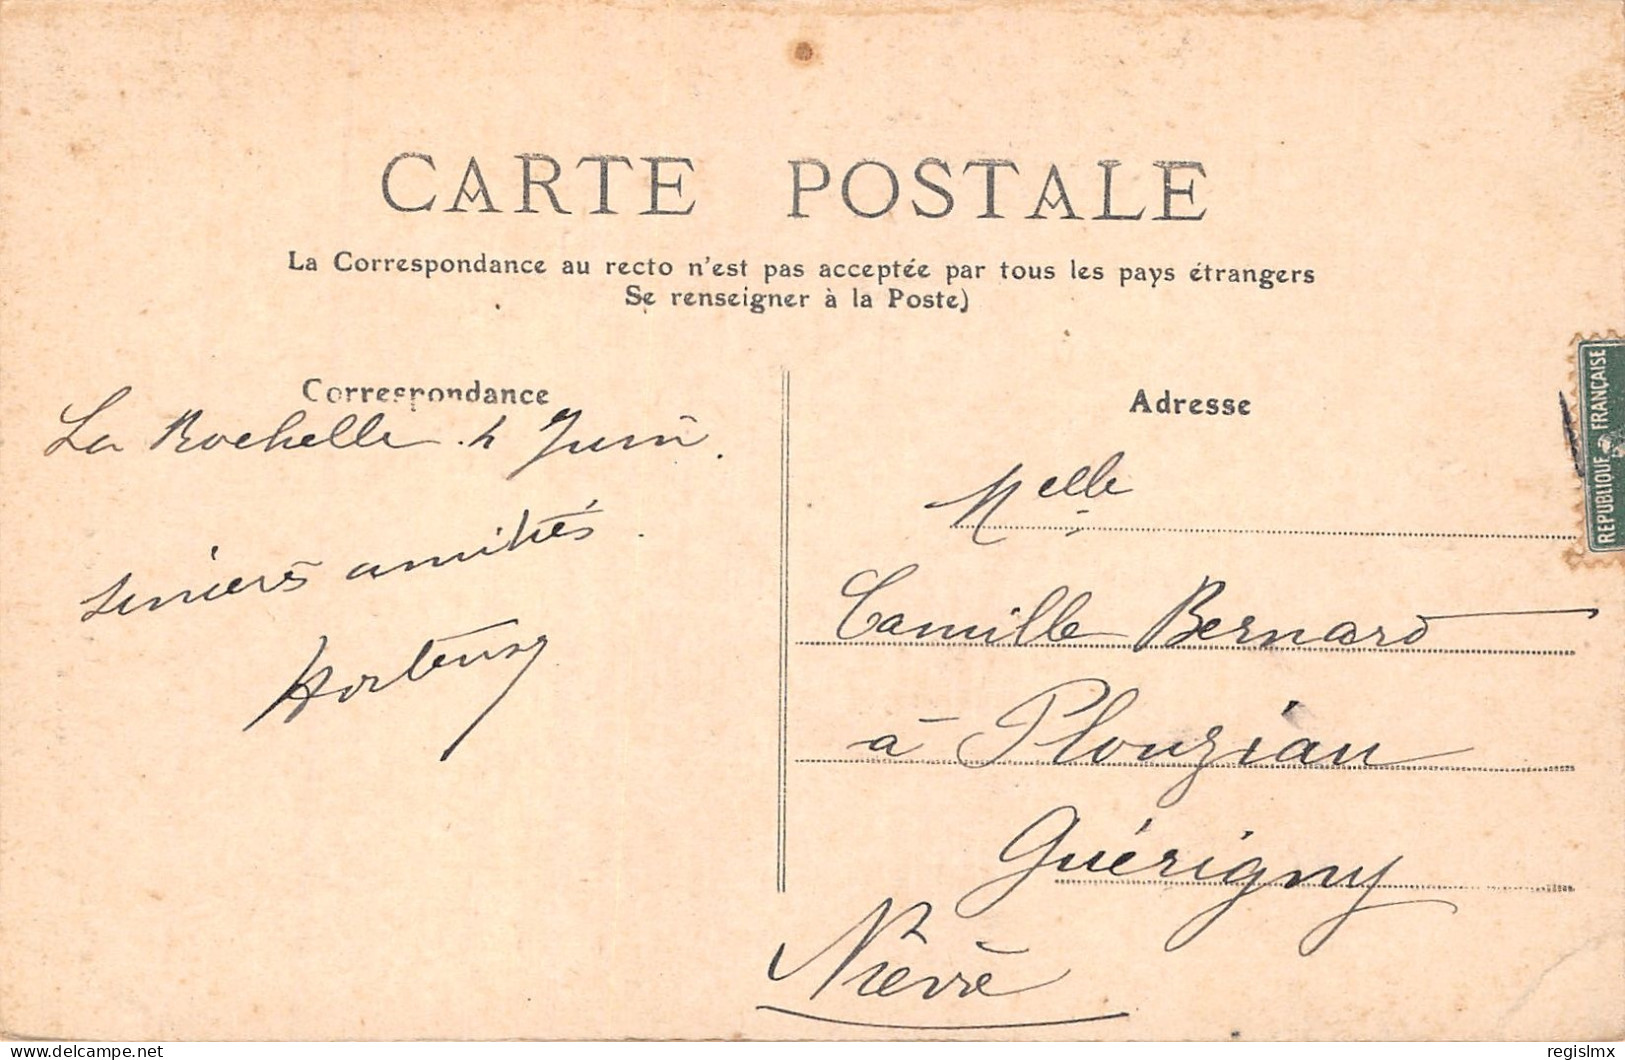 CARTE POSTALE
La Correspondance au recto n'est pas acceptée par tous les pays étrangers
Se renseigner à la Poste)
Correspondance
La Rochelle 4 Juin.
sincères amitiés.
Adresse
Melle
Camille Bernard
à Plouzian
Guérigny
Nièvre
REPUBLIQUE FRANÇAISE
delcampe.net
regislmx